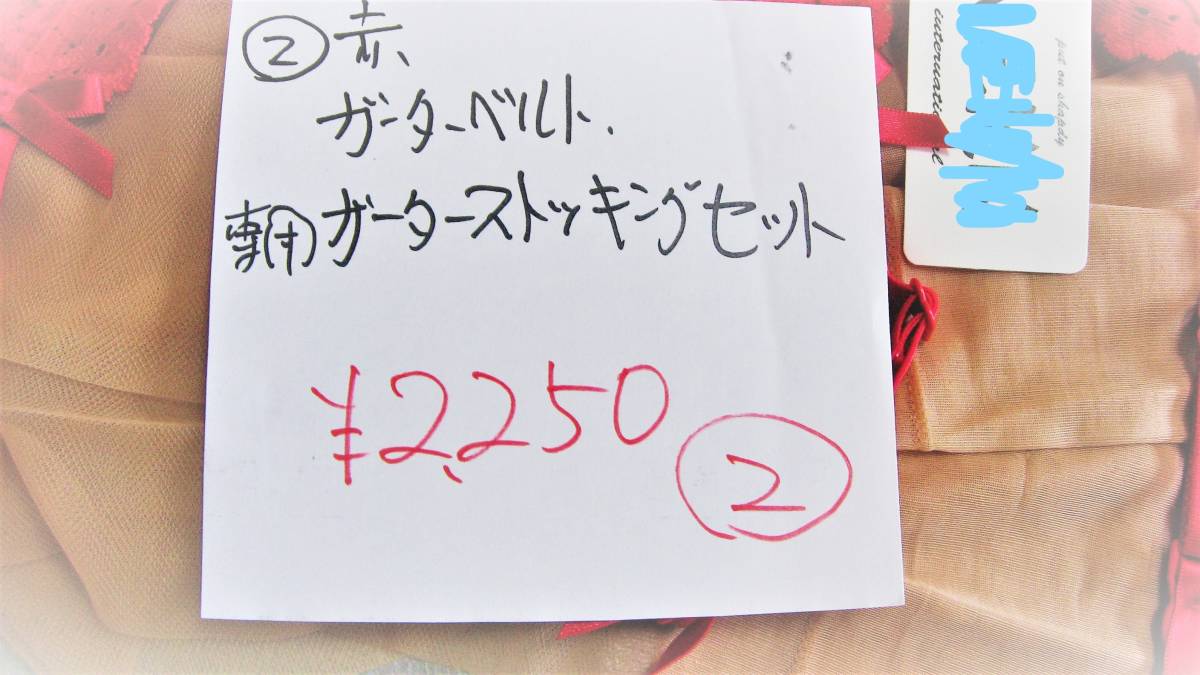 ② 赤、
ガーターベルト、
専用ガーターストッキングセット
¥2,250
②
put on shapely